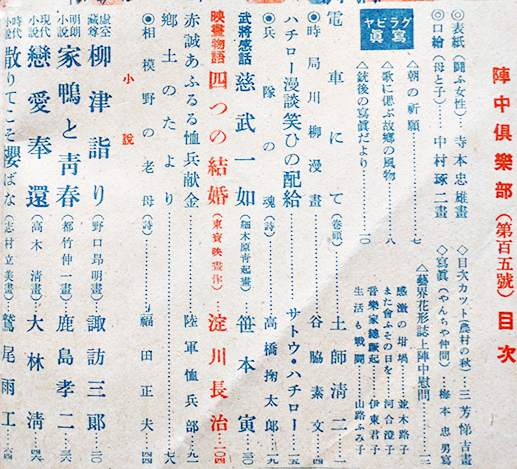 陣中倶樂部（第百五號）目次
◎表紙（鬪ふ女性）…寺本忠雄畫
◎口繪（母と子）…中村琢二畫
◇目次カット（農村の秋）…三芳悌吉畫
◇寫眞（やんちゃ仲間）…梅本忠男寫
グラビヤ寫眞
◇朝の祈願…七
◇歌に偲ぶ故鄕の風物…八
◇銃後の寫眞だより…一〇
◇藝界花形誌上陣中慰問
感激の坩堝…並木路子
また會ふその日を…河合澄子
音樂家總蹶起…伊東君子
生活も戰鬪…山路ふみ子
電車にて（卷頭）…土師淸二…二
◎時局川柳漫畫…谷脇素文…四
ハチロー漫談笑ひの配給…サトウ・ハチロー…一五
◎兵隊の魂（詩）…高橋掬太郎…一九
武將感話 慈武一如（細木原靑起畫）…笹本寅…二〇
映畫物語 四つの結婚（東寶映畫作）…淀川長治…一〇四
赤誠あふるる恤兵獻金…陸軍恤兵部…九一
鄕土のたより…七八
◎相模野の老母（詩）…福田正夫…四四
小說
虛室藏尊 柳津詣り（野口昻明畫）…諏訪三郎…三〇
明朗小說 家鴨と靑春（都竹伸一畫）…鹿島孝二…三八
現代小說 戀愛奉還（高木淸畫）…大林淸…四六
時代小說 散りてこそ櫻ばな（志村立美畫）…鷲尾雨工…六四